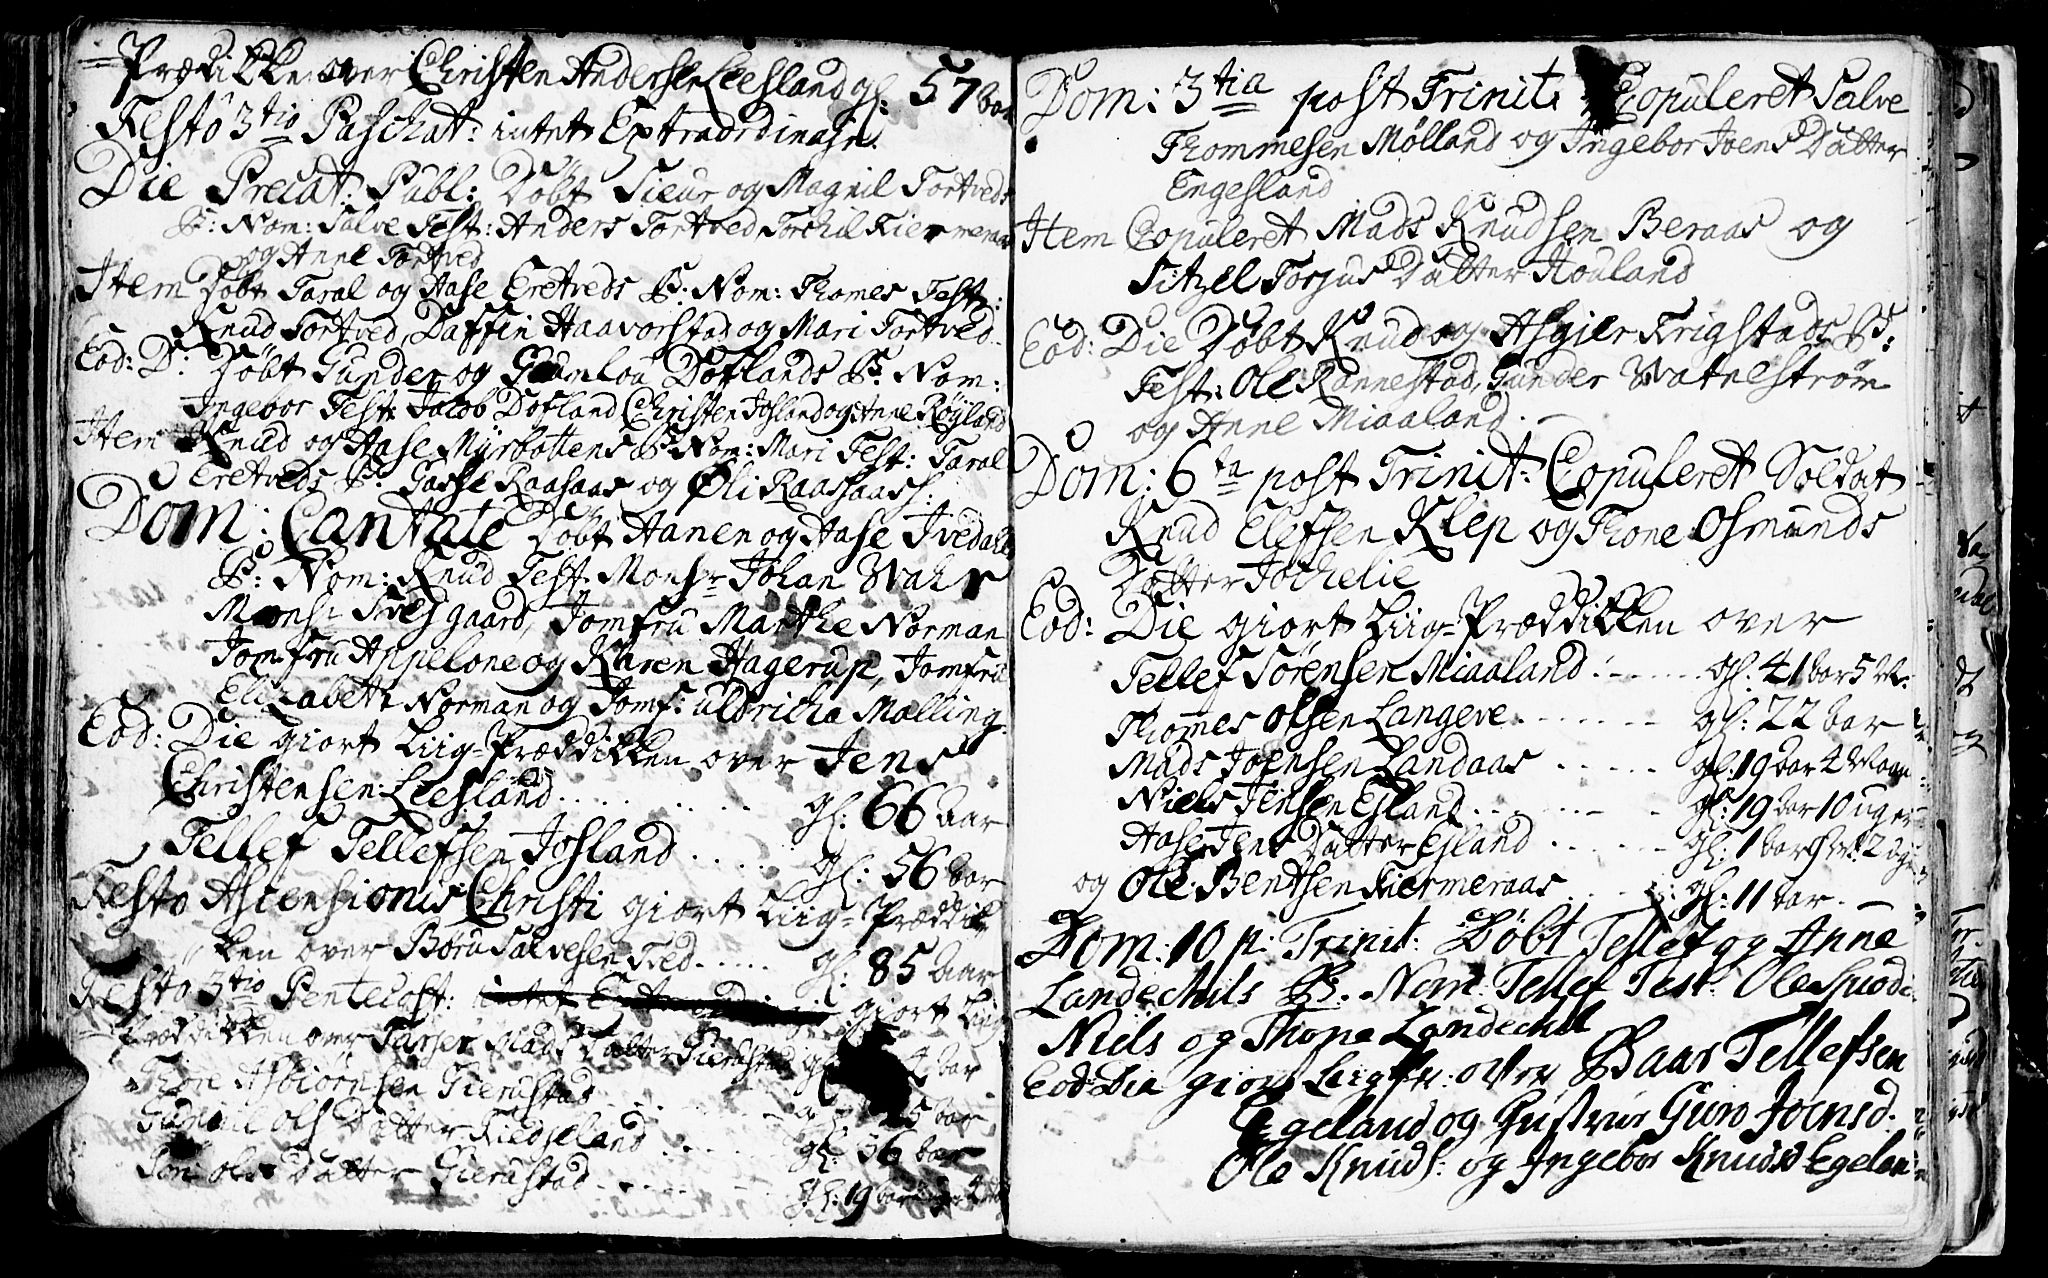 Prædikken over Christen Andersen Leesland gl: 57 aar
Festo 3tio Paschat: intet Extraordinair.
Die Precat: Publ: Døbt Sieur og Magnil Tortveds
B: Nom: Salve Test: Anders Tortved Torchil Kiermeraas
og Anne Tortved
Item Døbt Taral og Aase Eretveds B: Nom: Thomes Test:
Knud Tortved, Daffin Haavorstad og Mari Tortved
Eod: D: Døbt Gunder og Gunlou Doflands B. Nom:
Ingebor Test: Jacob Dofland Christen Josland og Anne Røyland
Item Knud og Aase Myrbottens B Nom: Mari Test: Taral
Eretveds B. Gasse Raasaas og Øli Raasaas
Dom: Cantate Døbt Hanen og Aase Ivedals
B: Nom: Knud Test. Monsr Johan Wahr
Monsr Svejgaard, Jomfru Marthe Norman
Jomfru Appelone og Karen Hagerup, Jomfru
Elizabeth Norman og Jomf: Uldricha Malling.
Eod: Die giort Liig-Præddikken over Jens
Christensen Leesland gl: 66 aar
Tellef Tellefsen Josland gl: 56 aar
Festo Ascensionis Christi giort Liig-Præddik
ken over Børu Salvesen Tved gl: 85 aar
Festo 3tio Pentecost: giort Liig
Præddikken over Mads Datter Gierustad gl: aar
Thore Asbiørnsen Gierustad aar
Gunnil Ols Datter Kiedseland gl: 36 aar
Siri Ols Datter Gierustad gl: 19 aar
Dom: 3tia post Trinit: Copuleret Salve
Thommesen Mølland og Ingebor Joens Datter
Engesland
Item Copuleret Mads Knudsen Beraas og
Sitzel Torjus Datter Houland
Eod: Die Døbt Knud og Asgier Frigstads B:
Test: Ole Rannestad, Gunder Watnestrøm
og Anne Miaaland.
Dom: 6ta post Trinit: Copuleret Soldat
Knud Elefsen Klep og Thone Osmunds
Datter Jochelie
Eod: Die giort Liig-Præddikken over
Tellef Sørensen Miaaland gl: 41 aar 5 M.
Thomes Olsen Langeve gl: 22 aar
Mads Joensen Landaas gl: 19 aar 4 Maan
Niels Jensen Esland gl: 19 aar 10 uger
Aase Jens Datter Esland gl: 1 aar 9 M: 2 Uger
og Ole Bentsen Kiermeraas gl: 11 aar.
Dom: 10 p: Trinit: Døbt Tellef og Anne
Landechils B. Nom: Tellef Test: Ole
Niels og Thone Landechil
Eod: Die giort Liigpr: over Baar Tellefsen
Egeland og Hustrue Guro Joensd.
Ole Knuds: og Ingebor Knudsd Egelan